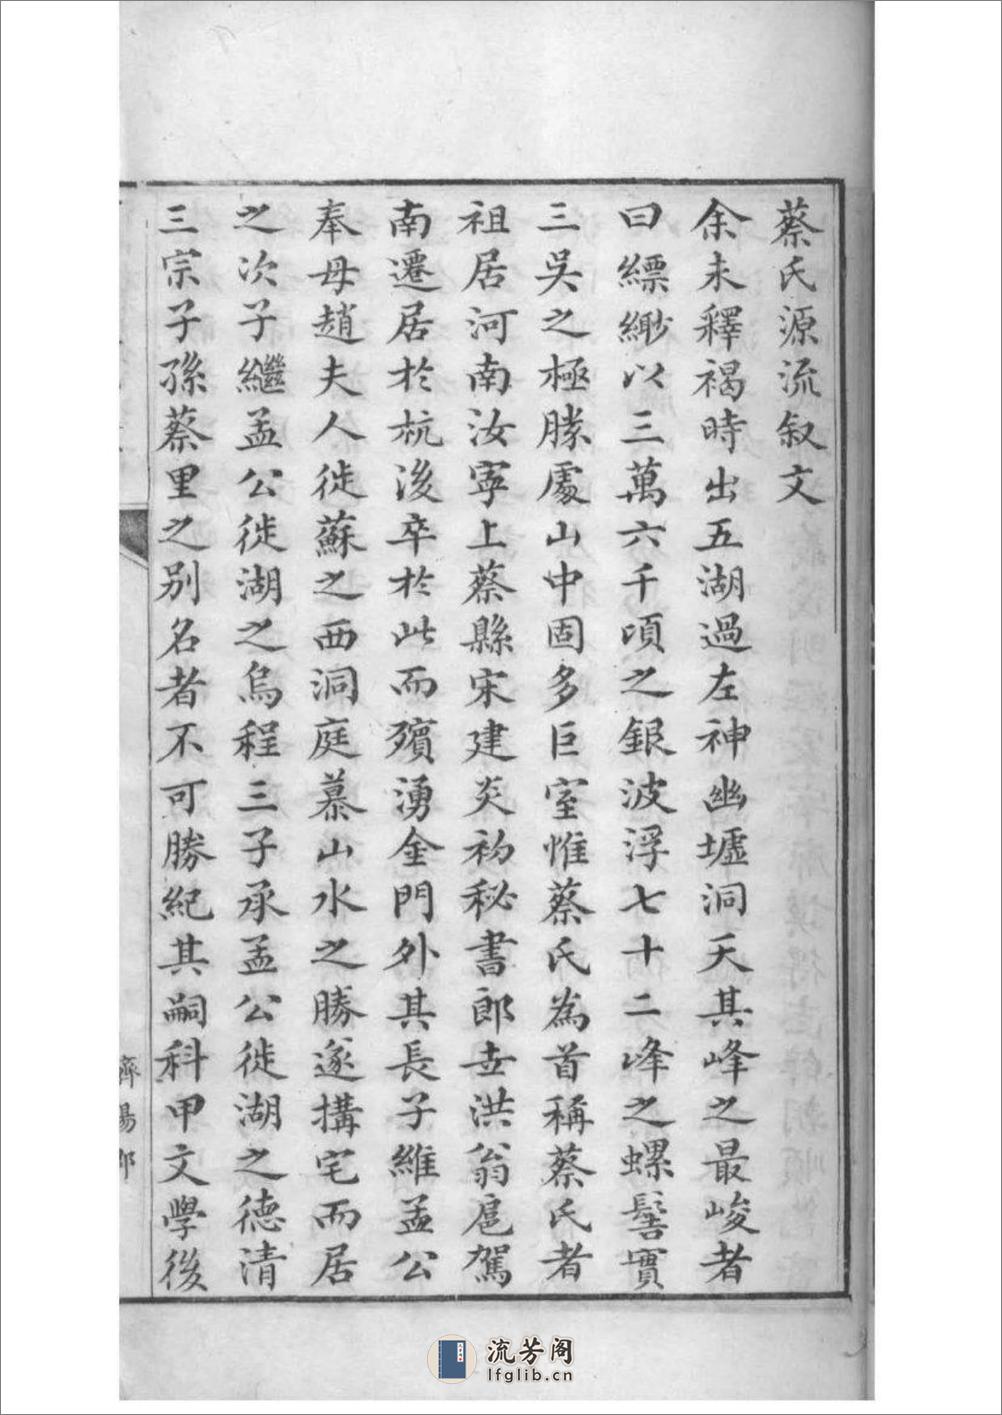 蔡氏源流叙文
余未釋褐時出五湖過左神幽墟洞天其峰之最峻者
曰縹緲以三萬六千頃之銀波浮七十二峰之螺髻實
三吳之極勝處山中固多巨室惟蔡氏為首稱蔡氏者
祖居河南汝寧上蔡縣宋建炎初秘書郎世洪翁扈駕
南遷居於杭後卒於此而殯湧金門外其長子維孟公
奉母趙夫人徙蘇之西洞庭慕山水之勝遂搆宅而居
之次子繼孟公徙湖之烏程三子承孟公徙湖之德清
三宗子孫蔡里之別名者不可勝紀其嗣科甲文學後
濟陽郡
流芳阁
lfglib.cn